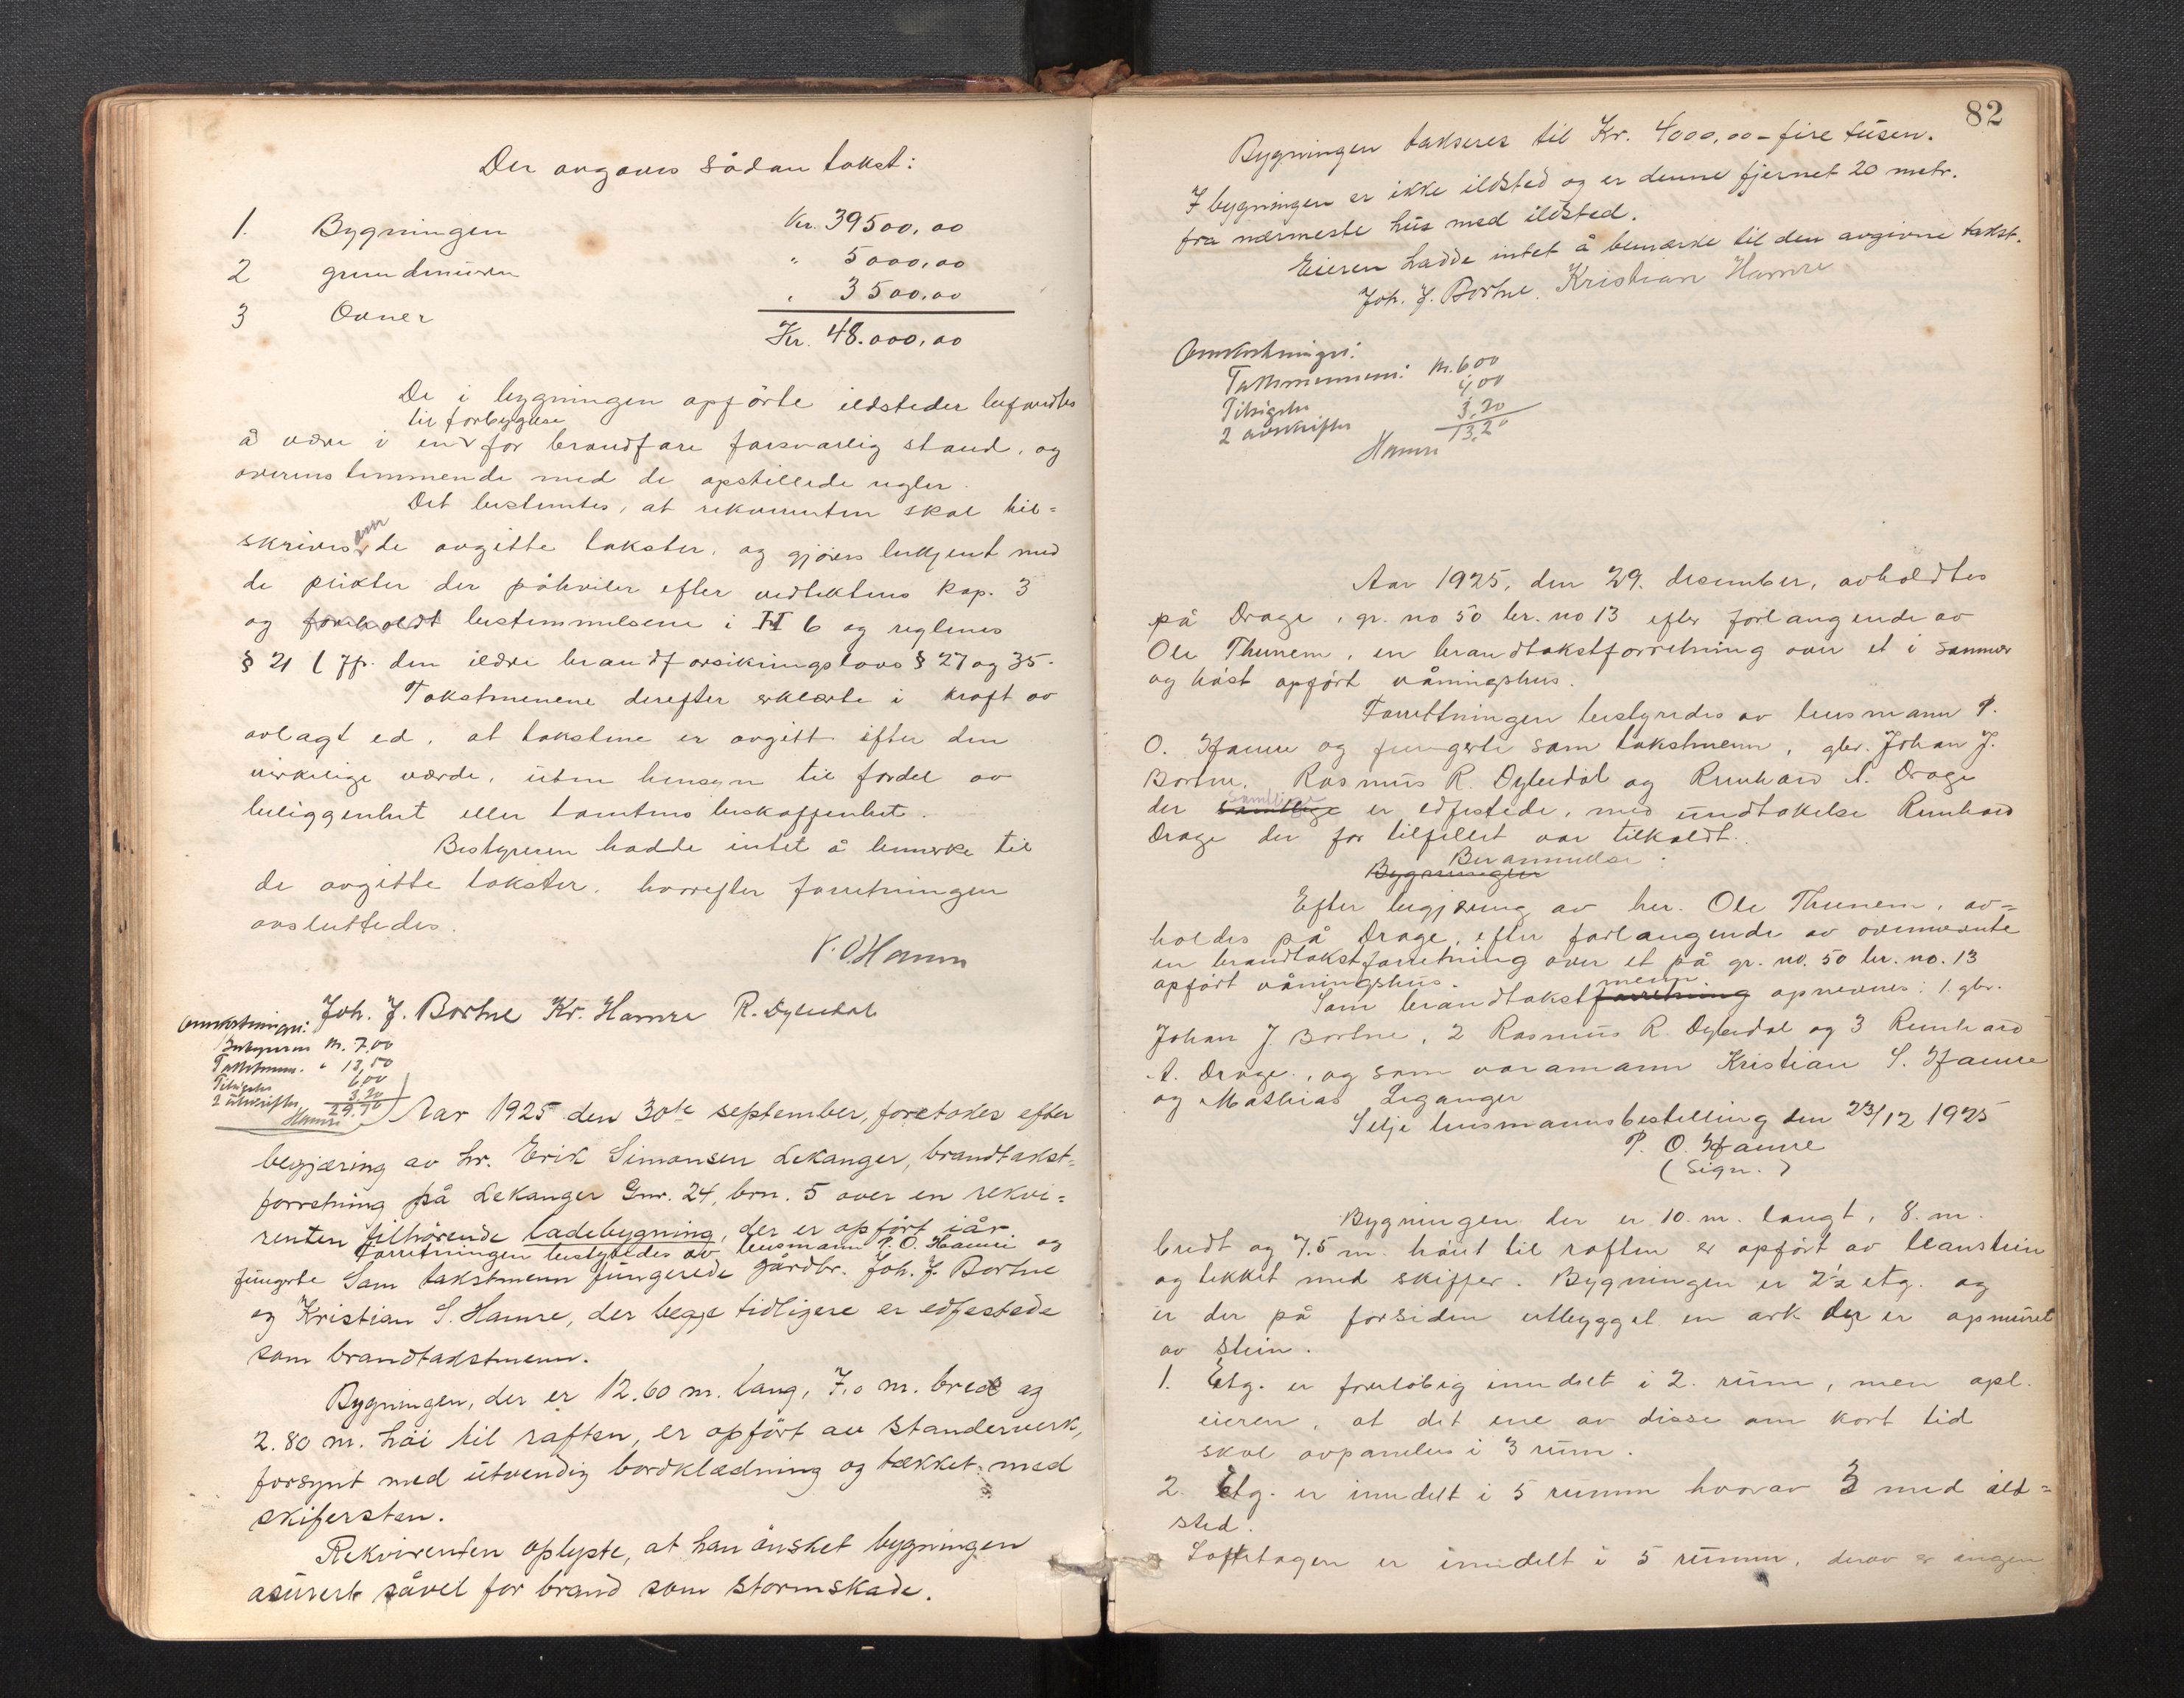 Der avgaves sådan takst:
1. Bygningen Kr. 39500,00
2 grundmuren " 5000,00
3 Ovner " 3500,00
Kr. 48.000,00
De i bygningen opförte ildsteder befandtes
til forbyggelse
å være i en for brandfare forsvarlig stand, og
overensstemmende med de opstillede regler.
Det bestemtes, at rekvirenten skal til=
om
skrives de avgitte takster, og gjöres bekjent med
de plikter der påhviler efter vedtektens kap. 3
og forholdt bestemmelsene i II 6 og reglenes
§ 21 ( jfr. den ældre brandforsikringslovs § 27 og 35.
Takstmennene derefter erklærte i kraft av
avlagt ed, at takstene er avgitt efter den
virkelige værde, uten hensyn til fordel av
beliggenhet eller tomtens beskaffenhet.
Bestyreren hadde intet å bemerke til
de avgitte takster, hvorefter forretningen
avsluttedes.
P. O. Hamre
Joh. J. Bortne Kr. Hamre R. Dybedal
Omkostninger:
Bestyreren Kr. 7,00
Takstmenn. " 13,50
Tilsigelse 6,00
2 utskrifter 3,20
29,70
Hamre
Aar 1925 den 30te september, foretakes efter
begjæring av hr. Erik Simonsen Lekanger, brandtakst=
forretning på Lekanger Gnr. 24, brn. 5 over en rekvi=
renten tilhörende ladebygning, der er opfört iår
Forretningen bestyredes av lensmann P. O. Hamre og
fungerte Som takstmenn fungerede gårdbr. Joh. J. Bortne
og Kristian S. Hamre, der begge tidligere er edfestede
som brandtakstmenn.
Bygningen, der er 12.60 m. lang, 7,0 m. bred og
2.80 m. höi til raften, er opfört av standerverk,
forsynt med utvendig bordklædning og tækket med
skifersten.
Rekvirenten oplyste, at han önsket bygningen
asurert såvel for brand som stormskade.
82
Bygningen takseres til Kr. 4000,00 - fire tusen.
I bygningen er ikke ildsted og er denne fjernet 20 metr.
fra nærmeste hus med ildsted.
Eieren hadde intet å bemærke til den avgivne takst.
Joh. J. Bortne. Kristian Hamre
Omkostninger:
Takstmennene: Kr. 6,00
Tilsigelse 4,00
2 avskrifter 3,20
13,20
Hamre
Aar 1925, den 29. desember, avholdtes
på Drage, gr. no 50 br. no 13 efter forlangende av
Ole Thunem, en brandtakstforretning over et i sommer
og höst opfört våningshus.
Forretningen bestyredes av lensmann P.
O. Hamre og fungerte som takstmenn, gbr. Johan J.
Bortne, Rasmus R. Dybedal og Reinhard A. Drage
samtlige
der samtlige er edfestede, med undtakelse Reinhard
Drage der for tilfellet var tilkaldt.
Berammelse:
Bygningen
Efter begjæring av hr. Ole Thunem, av=
holdes på Drage, efter forlangende av ovennevnte
en brandtakstforretning over et på gr. no. 50 br. no. 13
opfört våningshus.
menn
Som brandtakstforretning opnevnes: 1. gbr.
Johan J Bortne, 2 Rasmus R. Dybedal og 3 Reinhard
A. Drage, og som varamann Kristian S. Hamre
og Mathias Leganger
Selje lensmannsbestilling den 23/12 1925
P. O. Hamre
(Sign.)
Bygningen der er 10. m. langt, 8. m.
bredt og 7.5 m. höit til raften er opfört av
og tekket med skiffer. Bygningen er 2½ etg. og
er der på forsiden utbygget en ark der er opmuret
av stein.
1. Etg. er foreløbig inndelt i 2. rum, men opl.
eieren, at det ene av disse om kort tid
skal avpaneles i 3 rum.
2. Etg. er inndelt i 5 rumm hvorav 3 med ild=
sted.
Loftetagen er inndelt i 5 rumm, derav er ingen